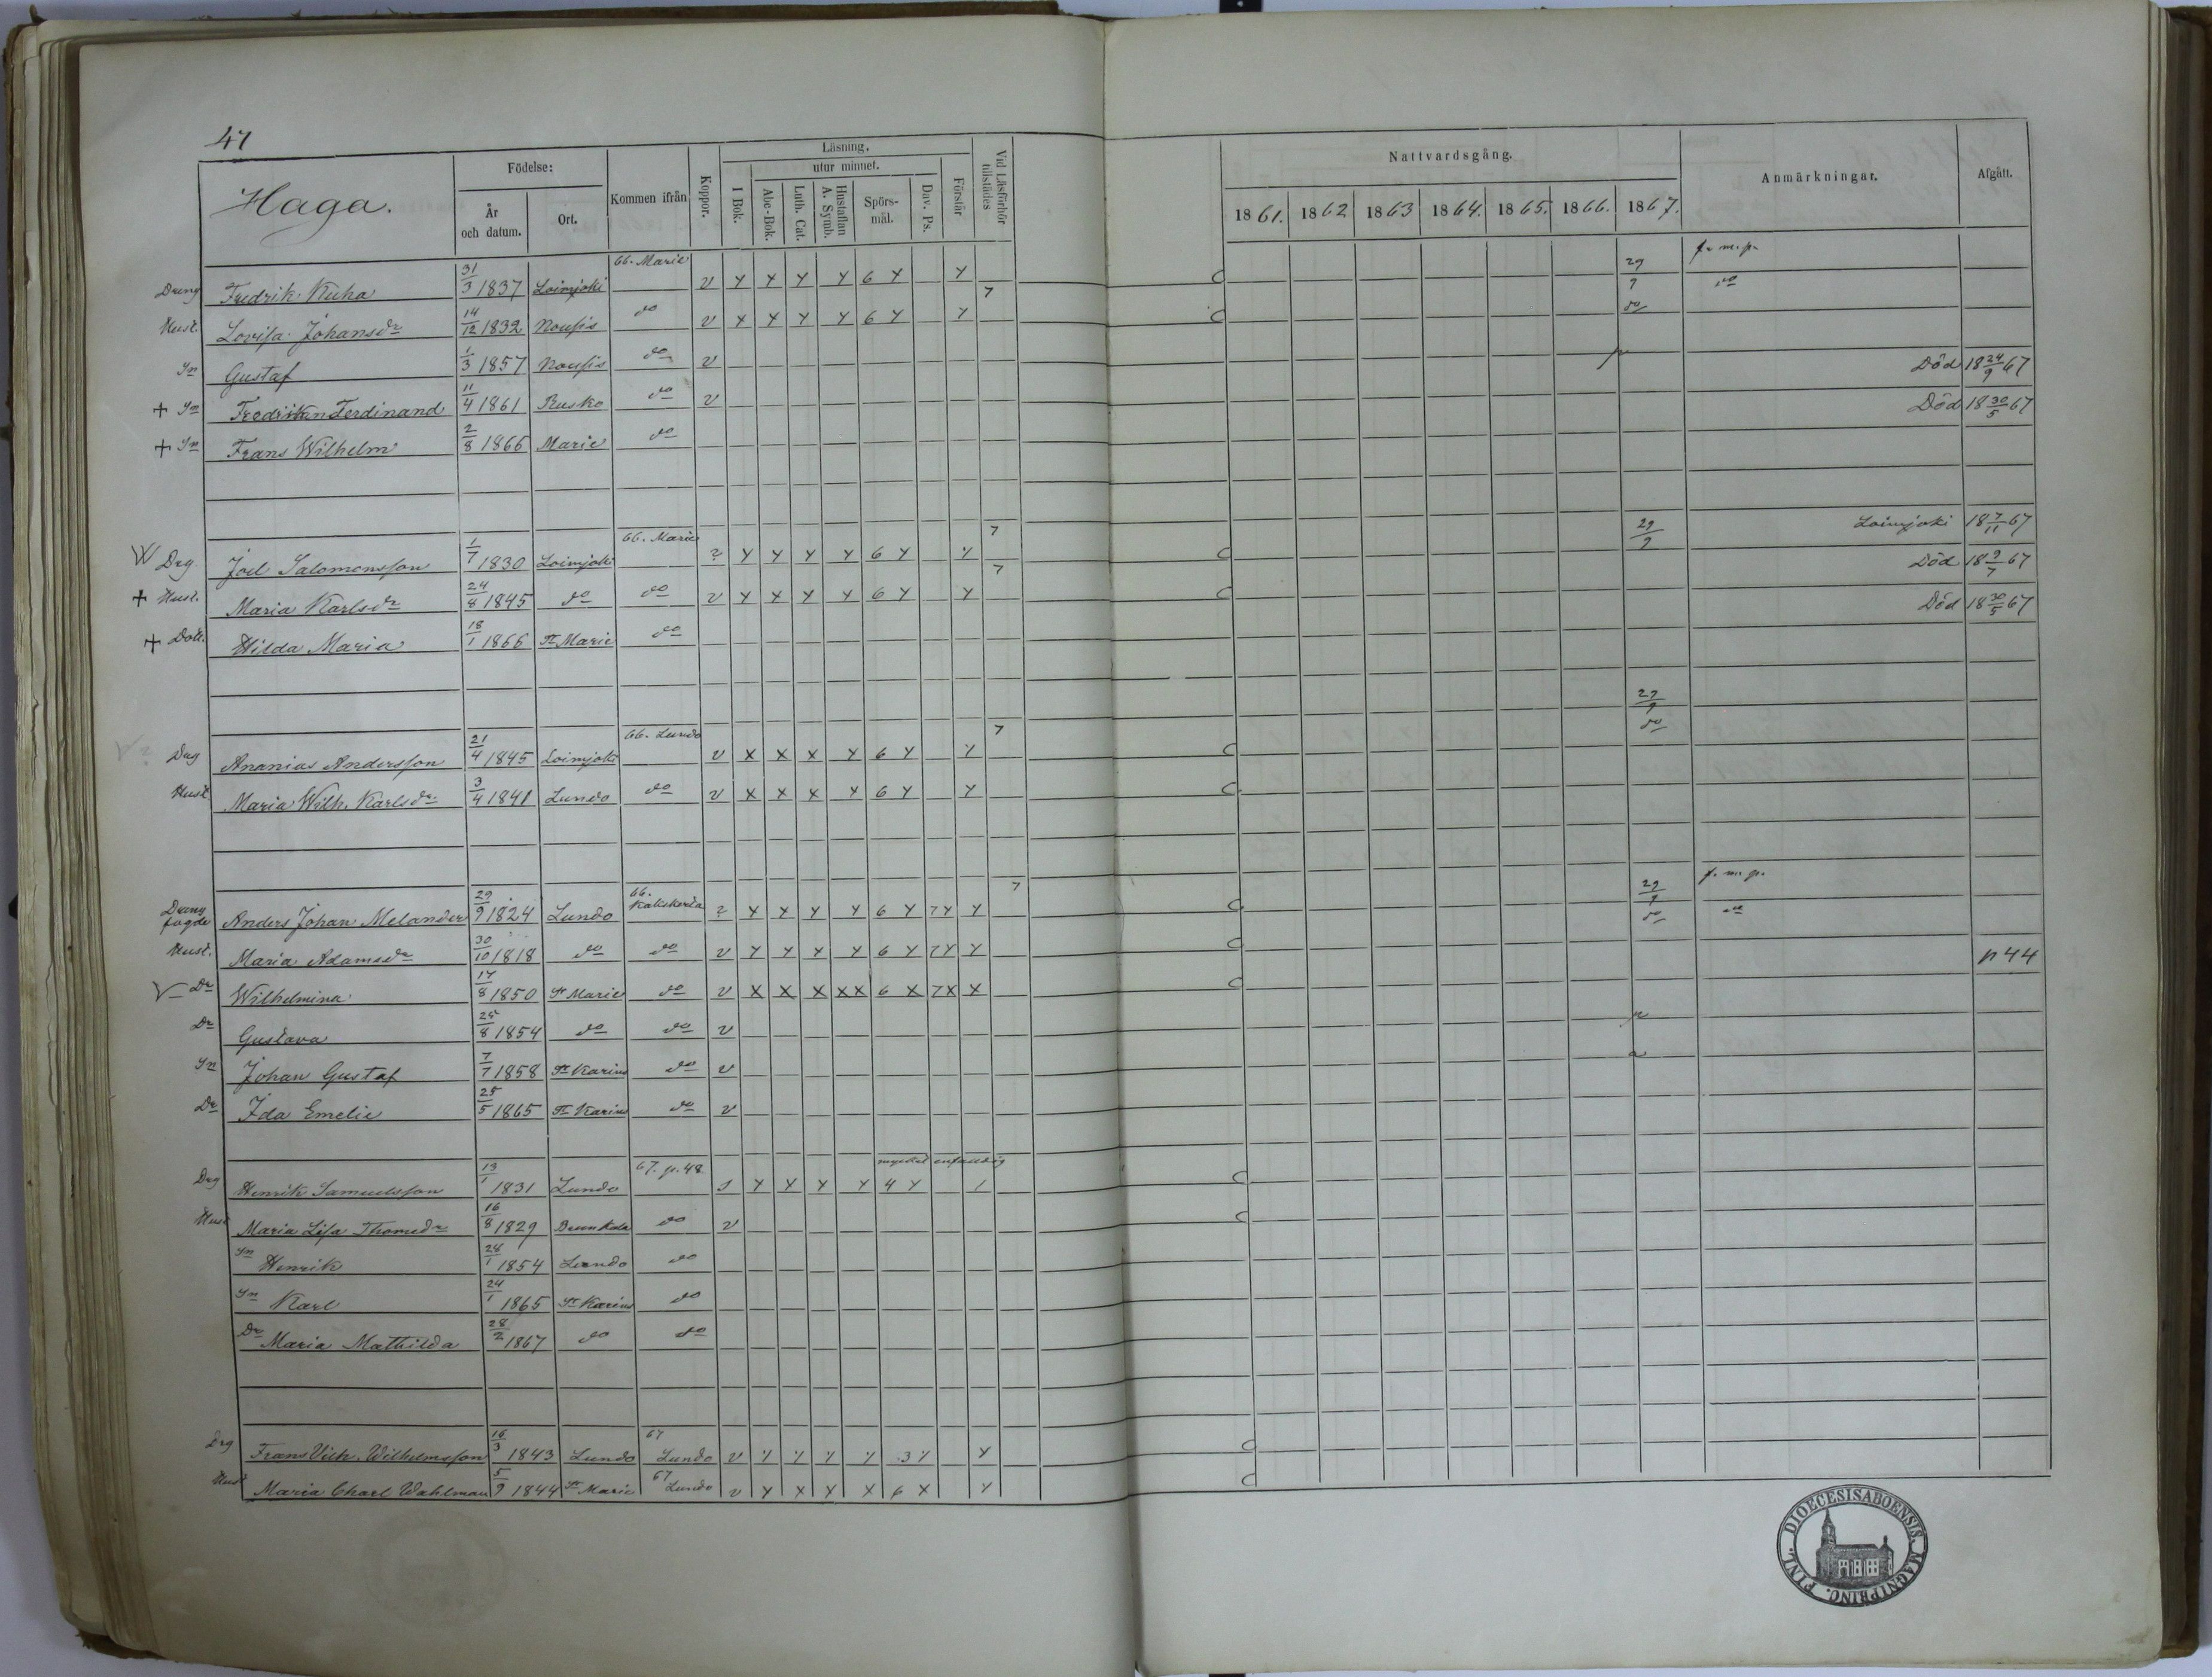 47
Haga.
Födelse:
År och datum.
Ort.
Kommen ifrån
Koppor.
Läsning.
I Bok.
utur minnet.
Abc-Bok.
Luth. Cat.
Hustaflan A. Symb.
Spörs-mål.
Dav. Ps.
Förstår
Vid Läsförhör tillstädes
Nattvardsgång.
1861. 1862 1863 1864. 1865. 1866. 1867.
Anmärkningar.
Afgått.
Dreng Fredrik Kuha 31/3 1837 Loimjoki 66. Marie v 6 29/9 f. m. p.
Hust. Lovisa Johansdr 14/12 1832 Nousis do v 6 7 do do
Sn Gustaf 1/3 1857 Nousis do v
+ Sn Fredrik Ferdinand 11/4 1861 Rusko do v Död 18 24/9 67
+ Sn Frans Wilhelm 2/8 1866 Marie do Död 18 30/5 67
Drg Joel Salomonsson 1/7 1830 Loimjoki 66. Marie 6 7 29/9 Loimjoki 18 7/11 67
+ Hust. Maria Karlsdr 24/8 1845 do do v 6 7 Död 18 9/7 67
+ Dott. Hilda Maria 18/1 1866 St Marie do Död 18 30/5 67
Drg Ananias Andersson 21/4 1845 Loimjoki 66. Lundo v 6 7 29/9
Hust. Maria Wilh. Karlsdr 3/4 1841 Lundo do v 6 do
Dreng fogde Anders Johan Melander 29/9 1824 Lundo 66. Kakskerta 6 7 7 29/9 f. m. p.
Hust. Maria Adamsdr 30/10 1818 do do v 6 7 do do
Dr Wilhelmina 17/8 1850 St Marie do v 6 7 p 44
Dr Gustava 25/8 1854 do do v
Sn Johan Gustaf 7/7 1858 St Karins do v
Dr Ida Emelie 25/5 1865 St Karins do v
Drg Henrik Samuelsson 13/1 1831 Lundo 67. p. 48 4 mycket enfaldig
Hust Maria Lisa Thomsdr 16/8 1829 do v
Sn Henrik 28/1 1854 Lundo do
Sn Karl 24/1 1865 St Karins do
Dr Maria Mathilda 28/2 1867 do do
Drg Frans Vilh. Wilhelmsson 16/3 1843 Lundo 67 Lundo v 3
Hust Maria Charl Wahlman 5/9 1844 St Marie 67 Lundo v 6
DIOECESISABOENSIS. MAGNIPRINC. FINL.